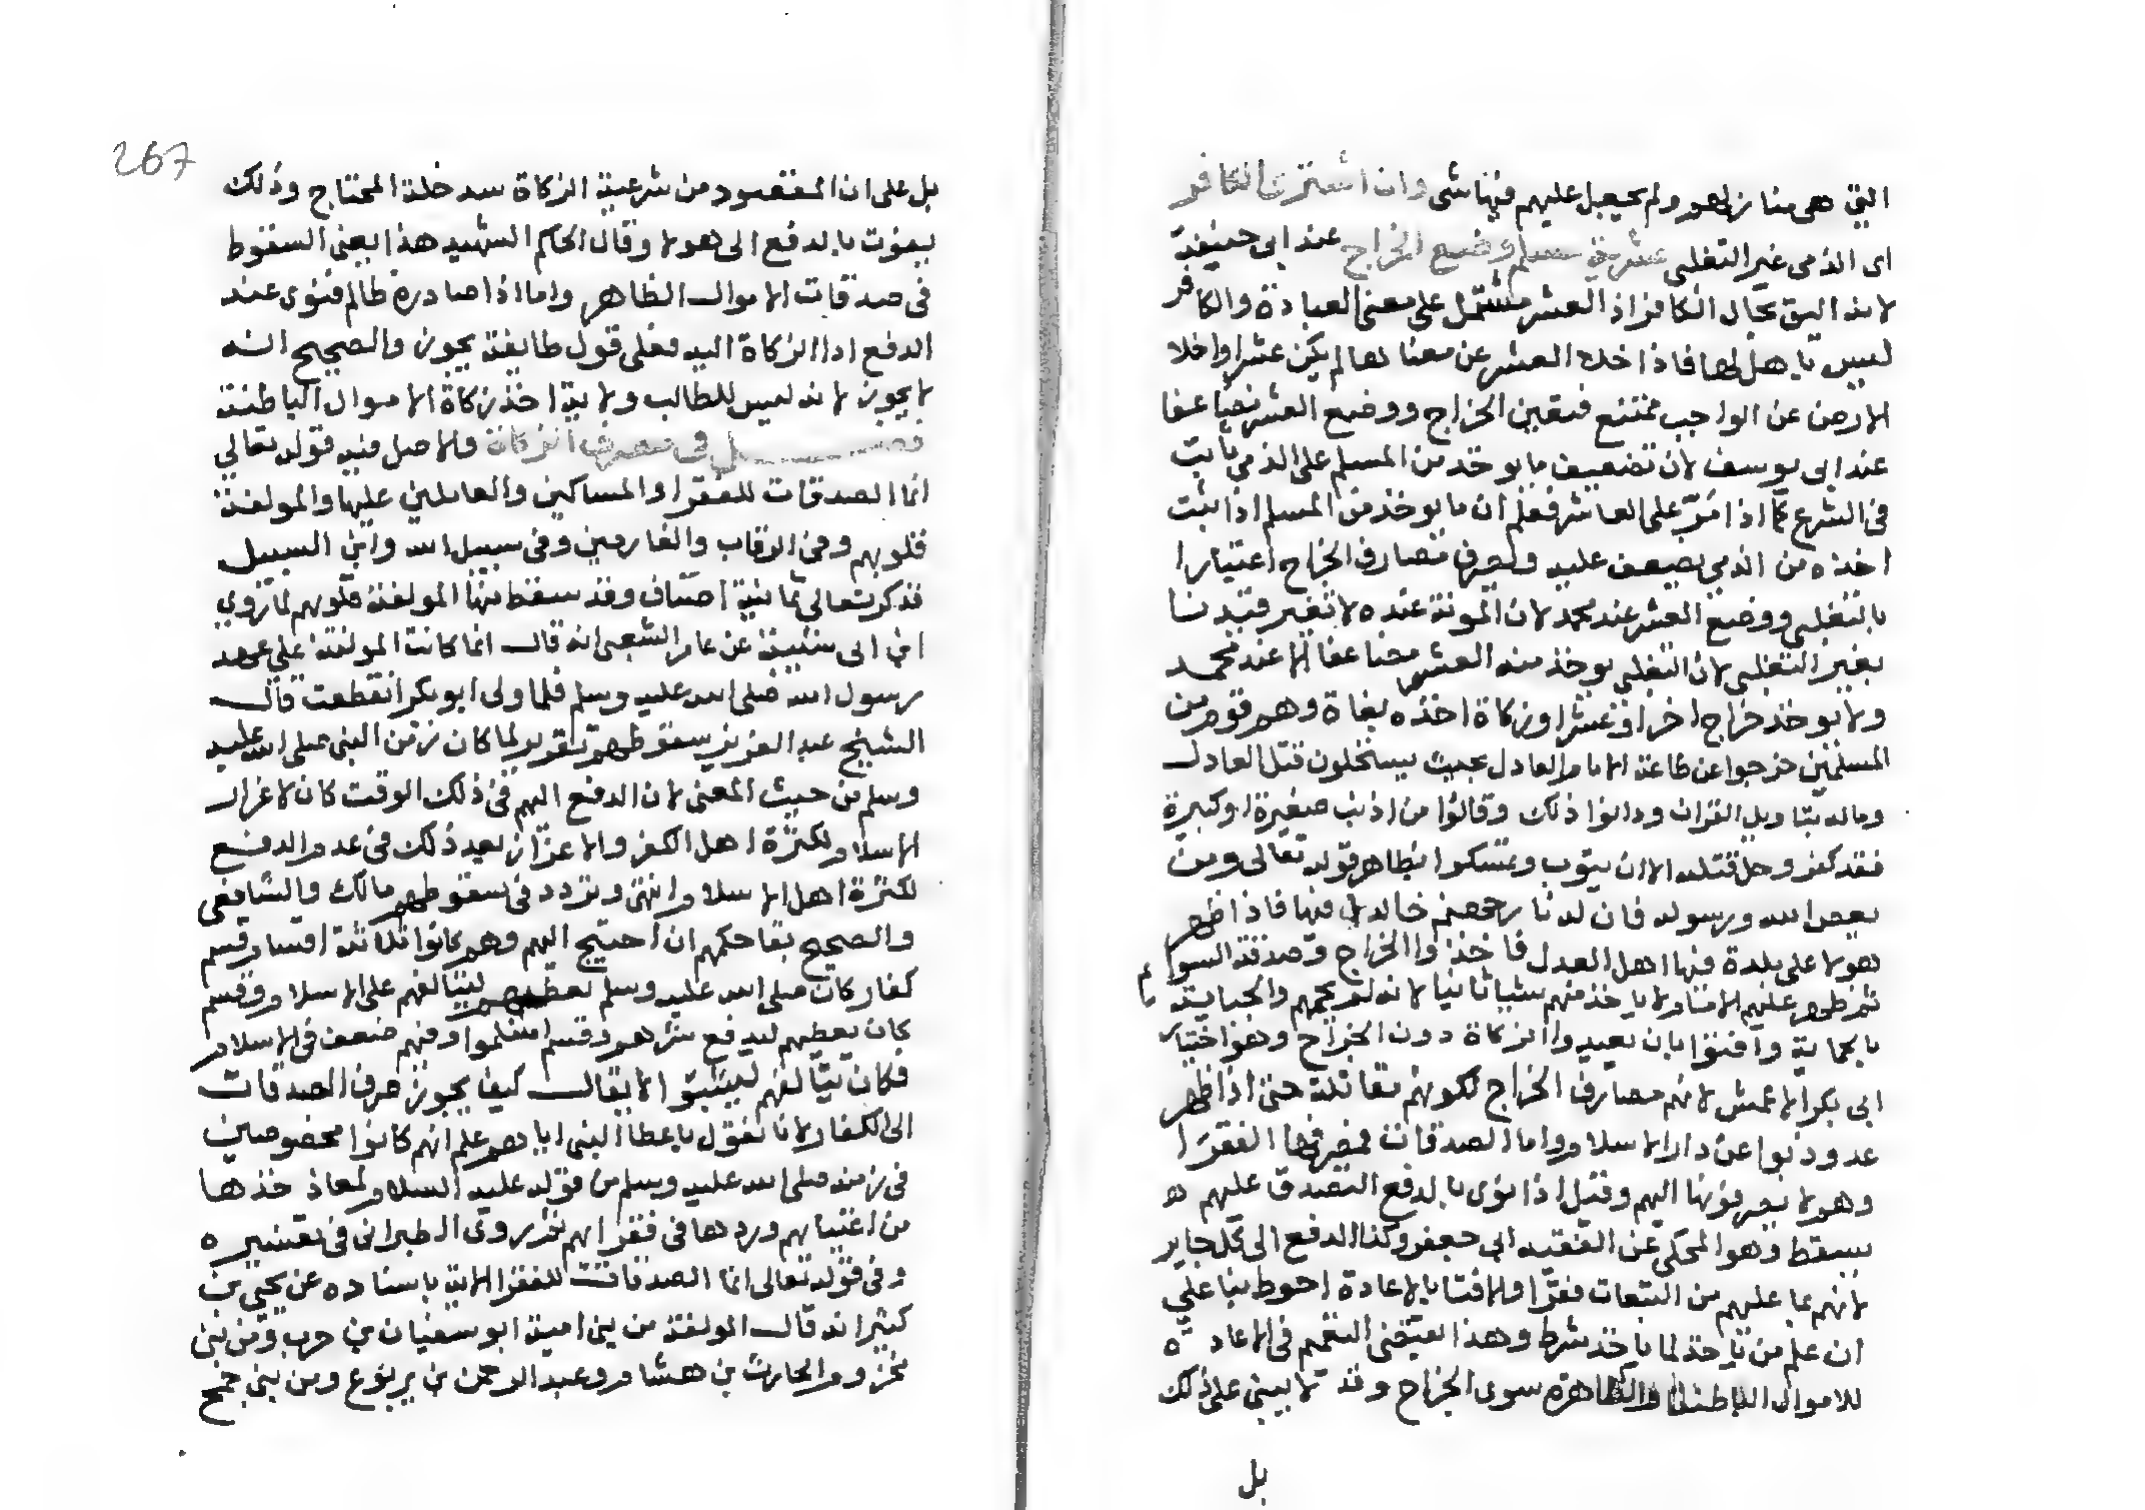 التي هي منازلهم ولم يجعل عليهم فيها شي وان اشترى الكافر
اى الذمى غير التغلبي عشرية مسلم وضع الخراج عند ابى حنيفة
لانه اليق بحال الكافر اذ العشر مشتمل على معنى العبادة والكافر
ليس باهل لها فاذا خلا العشر عن معناها لم يكن عشرا واخلا
الارض عن الواجب ممتنع فتعين الخراج ووضع العشر مضاعفا
عند ابى يوسف لان تضعيف ما يوخذ من المسلم على الذمي ثابت
فى الشرع كما اذا مر على العاشر فعلم ان ما يوخذ من المسلم اذا ثبت
اخذه من الذمي يضعف عليه ولصرف مصارف الخراج اعتبارا
بالتغلبي ووضع العشر عند محمد لان المونة عنده لا تتغير قيدنا
بغير التغلبي لان التغلبي يوخذ منه العشر مضاعفا الا عند محمد
ولا يوخذ خراج اخر او عشر او زكاة اخذه بغاة وهم قوم من
المسلمين خرجوا عن طاعة الامام العادل بحيث يستحلون قتل العادل
وماله بتاويل القران ودانوا ذلك وقالوا من اذنب صغيرة او كبيرة
فقد كفر وحل قتله الا ان يتوب وتمسكوا بظاهر قوله تعالى ومن
يعص الله ورسوله فان له نار جهنم خالدا فيها فاذا ظهر
هولا على بلدة فيها اهل العدل فاخذوا الخراج وصدقة السوايم
ثم ظهر عليهم الامام لا ياخذ منهم شيا ثانيا لانه لم يحمهم والجباية
بالحماية وافتوا بان يعيدوا الزكاة دون الخراج وهو اختيار
ابى بكر الاعمش لانهم مصارف الخراج لكونهم مقاتلة حتى اذا ظهر
عدو ذبوا عن دار الاسلام واما الصدقات فمصرفها الفقرا
وهولا يصرفونها اليهم وقيل اذا نوى بالدفع التصدق عليهم
يسقط وهو المحكي عن الفقيه ابى جعفر وكذا الدفع الى كل جاير
لانهم بما عليهم من التبعات فقرا والافتا بالاعادة احوط بنا على
ان علم من ياخذ لما ياخذ شرط وهذا يقتضى التعميم فى الاعادة
للاموال الباطنة والظاهرة سوى الخراج وقد لا يبنى على ذلك
بل
267
بل على ان المقصود من شرعية الزكاة سد خلة المحتاج وذلك
يفوت بالدفع الى هولا وقال الحاكم الشهيد هذا يعنى السقوط
فى صدقات الاموال الظاهر واما اذا صادره ظالم فنوى عند
الدفع ادا الزكاة اليه فعلى قول طايفة يجوز والصحيح انه
لا يجوز لانه ليس للطالب ولاية اخذ زكاة الاموال الباطنة
فصل فى مصرف الزكاة والاصل فيه قوله تعالى
انما الصدقات للفقرا والمساكين والعاملين عليها والمولفة
قلوبهم وفى الرقاب والغارمين وفى سبيل الله وابن السبيل
فذكر تعالى ثمانية اصناف وقد سقط منها المولفة قلوبهم لما روى
ابن ابى شيبة عن عامر الشعبى انه قال انما كانت المولفة على عهد
رسول الله صلى الله عليه وسلم فلما ولى ابو بكر انقطعت قال
الشيخ عبد العزيز سقوطهم تقرير لما كان زمن النبى صلى الله عليه
وسلم من حيث المعنى لان الدفع اليهم فى ذلك الوقت كان لاعزاز
الاسلام لكثرة اهل الكفر والاعزاز بعد ذلك فى عدم الدفع
لكثرة اهل الاسلام وانتهى وتردد فى سقوطهم مالك والشافعى
والصحيح بقا حكمهم ان احتيج اليهم وهم كانوا ثلاثة اقسام قسم
كفار كان صلى الله عليه وسلم يعطيهم ليتالفهم على الاسلام وقسم
كان يعطيهم ليدفع شرهم وقسم اسلموا وفيهم ضعف فى الاسلام
فكان يتالفهم ليثبتوا لا يقال كيف يجوز صرف الصدقات
الى الكفار لانا نقول باعطا النبى اياهم علم انهم كانوا مخصوصين
فى زمنه صلى الله عليه وسلم من قوله عليه السلام لمعاذ خذها
من اغنيايهم وردها فى فقرايهم نخر روى الطبرانى فى تفسيره
وفى قوله تعالى انما الصدقات للفقرا الاية باسناده عن يحيى بن
كثير انه قال المولفة من بنى امية ابو سفيان بن حرب ومن بنى
مخزوم الحارث بن هشام وعبد الرحمن بن يربوع ومن بنى جمح